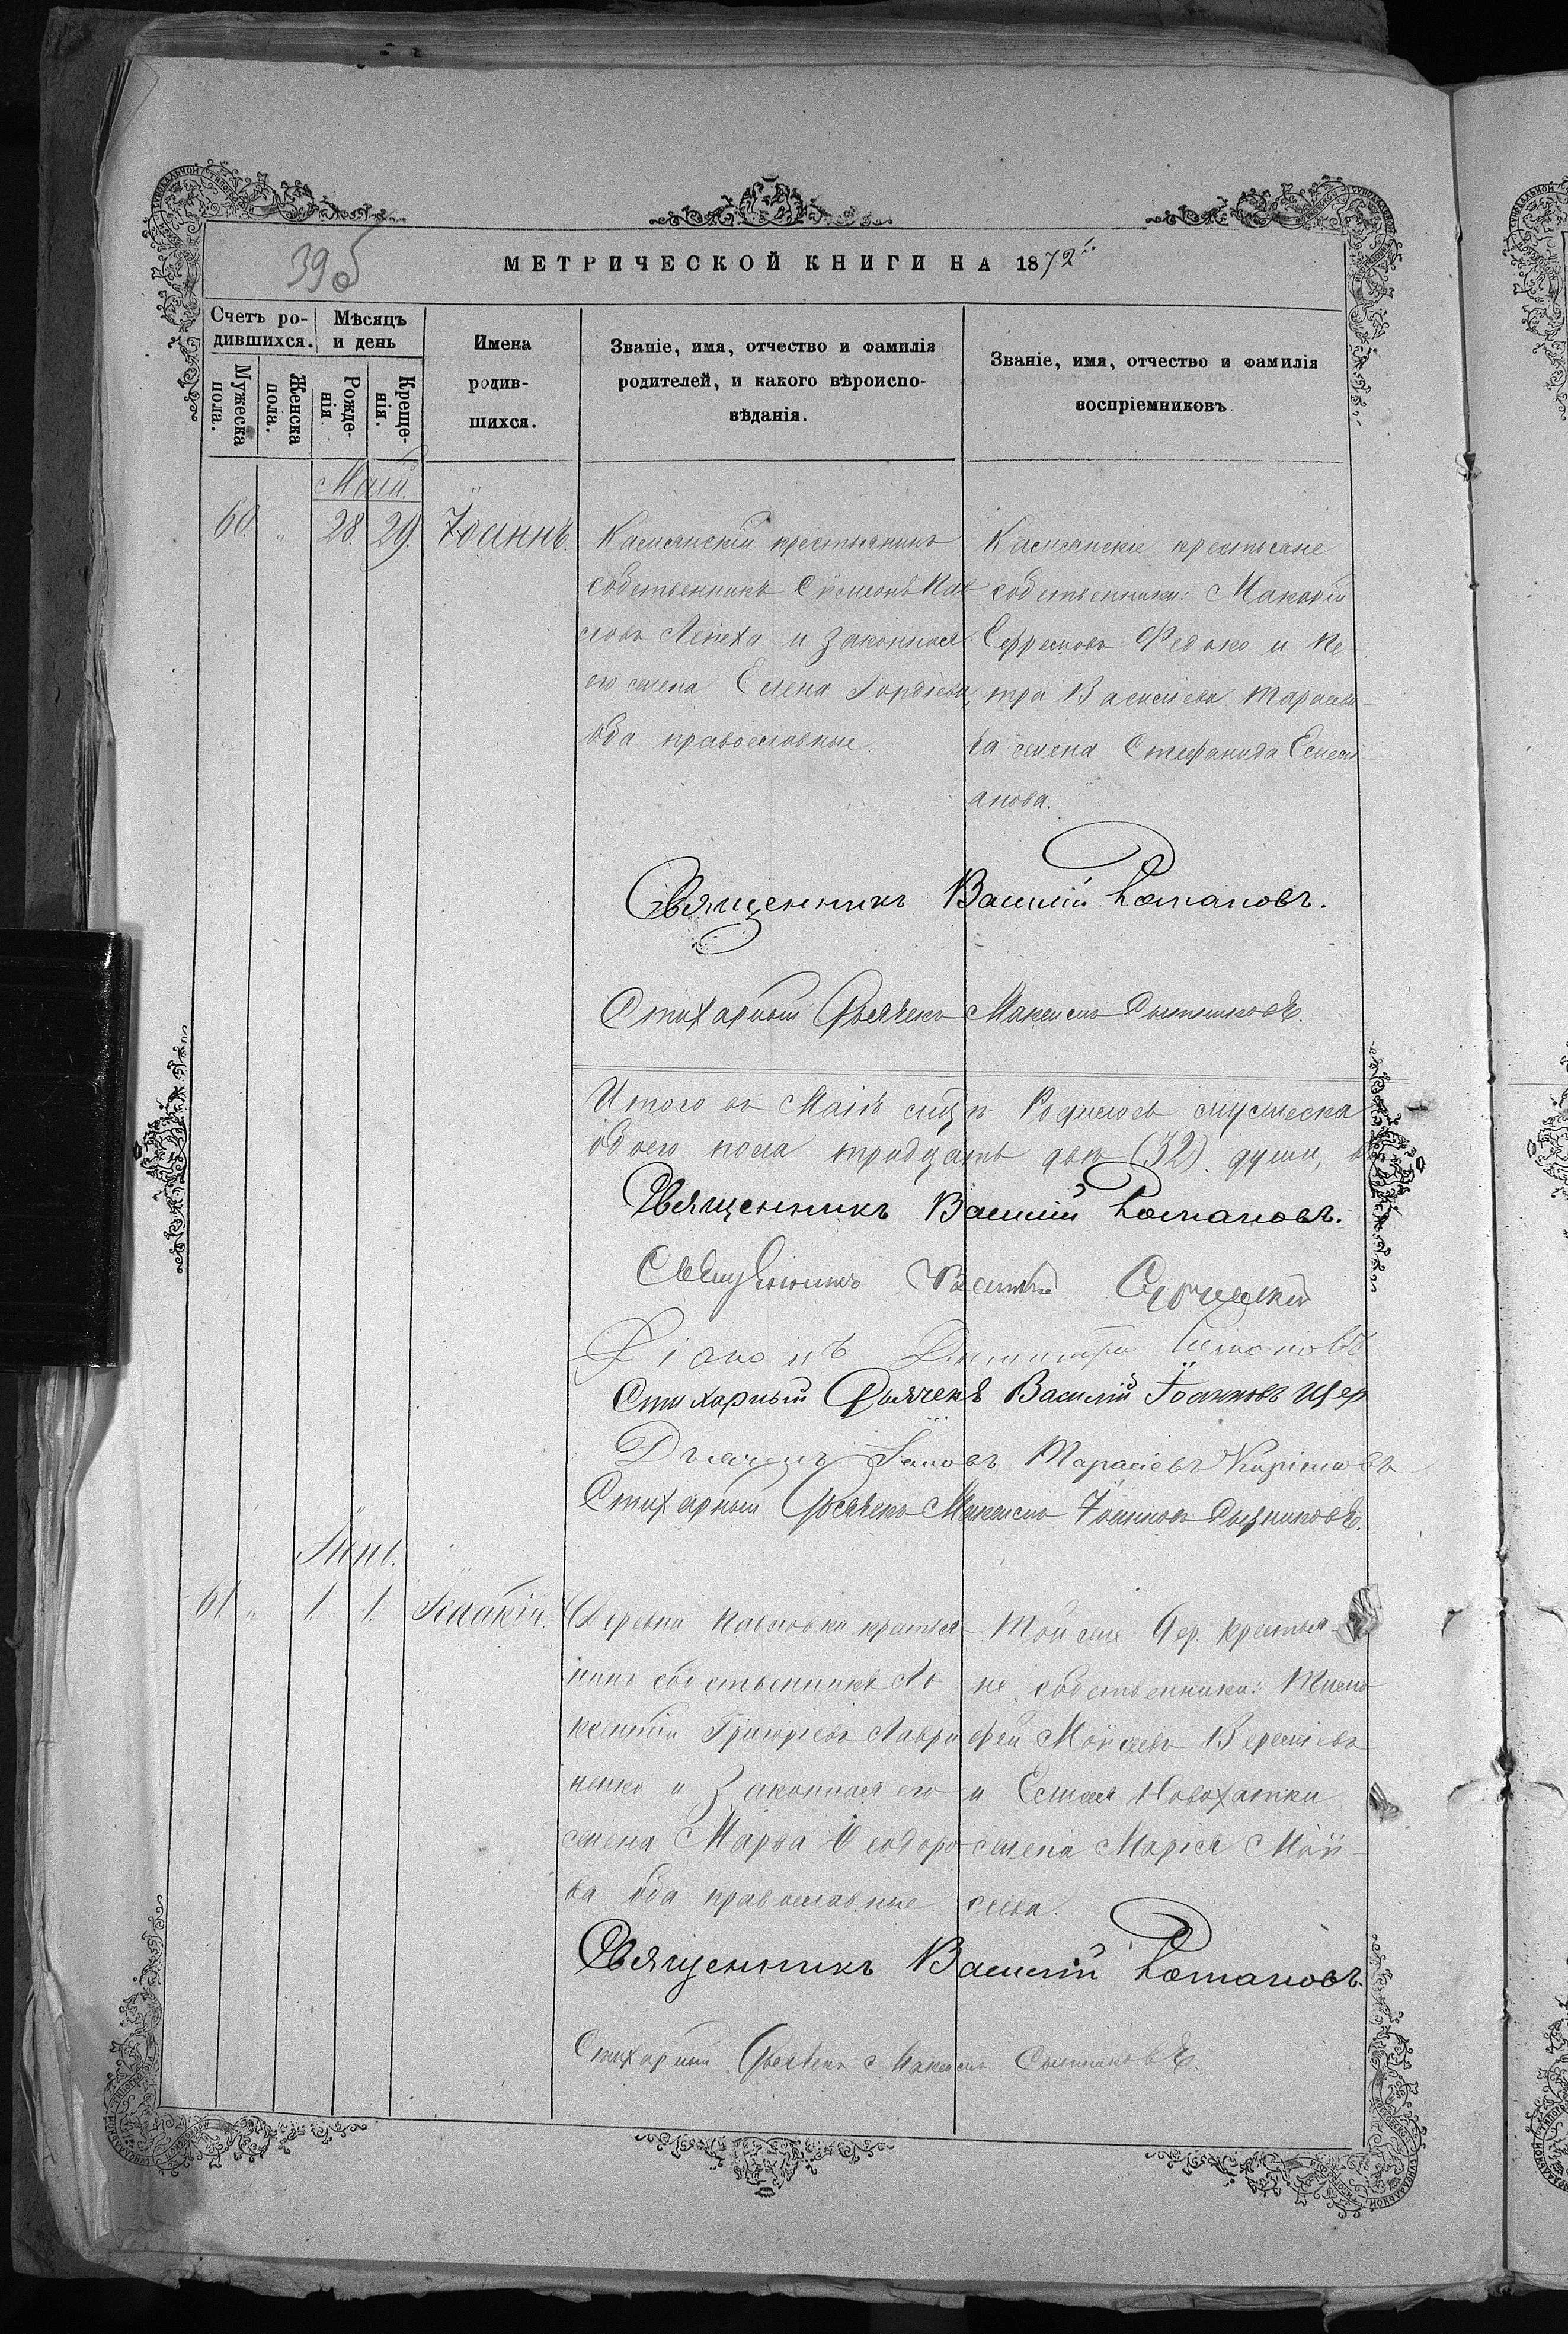 39 об
МЕТРИЧЕСКОЙ КНИГИ НА 1872 г.
Счетъ ро-
дившихся.
Мѣсяцъ
и день
Мужеска
пола.
Женска
пола.
Рожде-
нія.
Креще-
нія.
Имена
родив-
шихся.
Званіе, имя, отчество и фамилія
родителей, и какого вѣроиспо-
вѣданія.
Званіе, имя, отчество и фамилія
воспріемниковъ
Маій.
60. " 28. 29. Іоаннъ.
Камянскій крестьянинъ
собственникъ Сѵмеонъ Пав
ловъ Лепеха и законная
его жена Елена Гордіева,
оба православные.
Камянскіе крестьяне
собственники: Макарій
Ефремовъ Федько и Пе-
тра Василіева Тарасен-
ка жена Стефанида Емели
анова.
Священникъ Василій Романовъ.
Стихарный Дьячекъ Максимъ Сытниковъ.
Итого въ Маіѣ мцѣ Родилось мужеска
обоего пола тридцать двѣ (32) души,
Священникъ Василій Романовъ.
Священникъ Василій
Діаконъ Димитрій
Стихарный Дьячекъ Василій Іоанновъ
Дьячекъ Тарасіевъ
Стихарный Дьячекъ Максимъ Іоанновъ Сытниковъ.
Іюнь.
61. " 1. 1. Ісаакій.
Деревни Павловки крестья-
нинъ собственникъ Ав
ксентій Григоріевъ Лаври
ненко и законная его
жена Марѳа Ѳеодоро
ва оба православные.
Той же дер. крестья-
не собственники: Тимо
фей Моисеевъ Веремѣевъ
и Новохатки
жена Марія Мои-
сеева.
Священникъ Василій Романовъ.
Стихарный Дьячекъ Максимъ Сытниковъ.